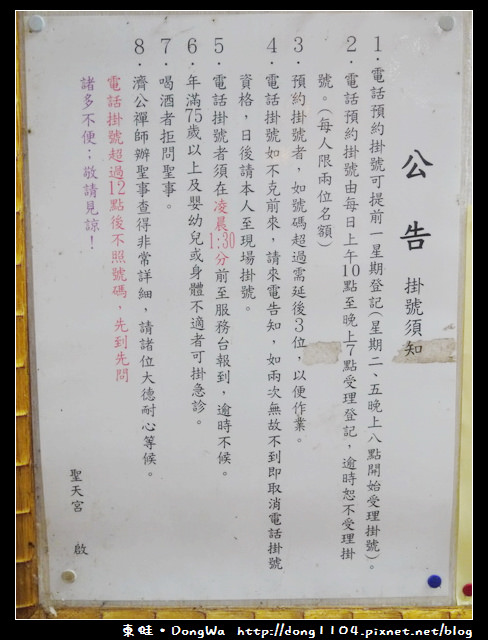 公告 掛號須知
1．電話預約掛號可提前一星期登記(星期二、五晚上八點開始受理掛號)。
2．電話預約掛號由每日上午10點至晚上7點受理登記，逾時恕不受理掛
號。(每人限兩位名額)
3．預約掛號者，如號碼超過需延後3位，以便作業。
4．電話掛號如不克前來，請來電告知，如兩次無故不到即取消電話掛號
資格，日後請本人至現場掛號。
5．電話掛號者須在凌晨1:30分前至服務台報到，逾時不候。
6．年滿75歲以上及嬰幼兒或身體不適者可掛急診。
7．喝酒者拒問聖事。
8．濟公禪師辦聖事查得非常詳細，請諸位大德耐心等候。
電話掛號超過12點後不照號碼，先到先問
諸多不便；敬請見諒！
聖天宮 啟
東蛙・DongWa http://dong1104.pixnet.net/blog